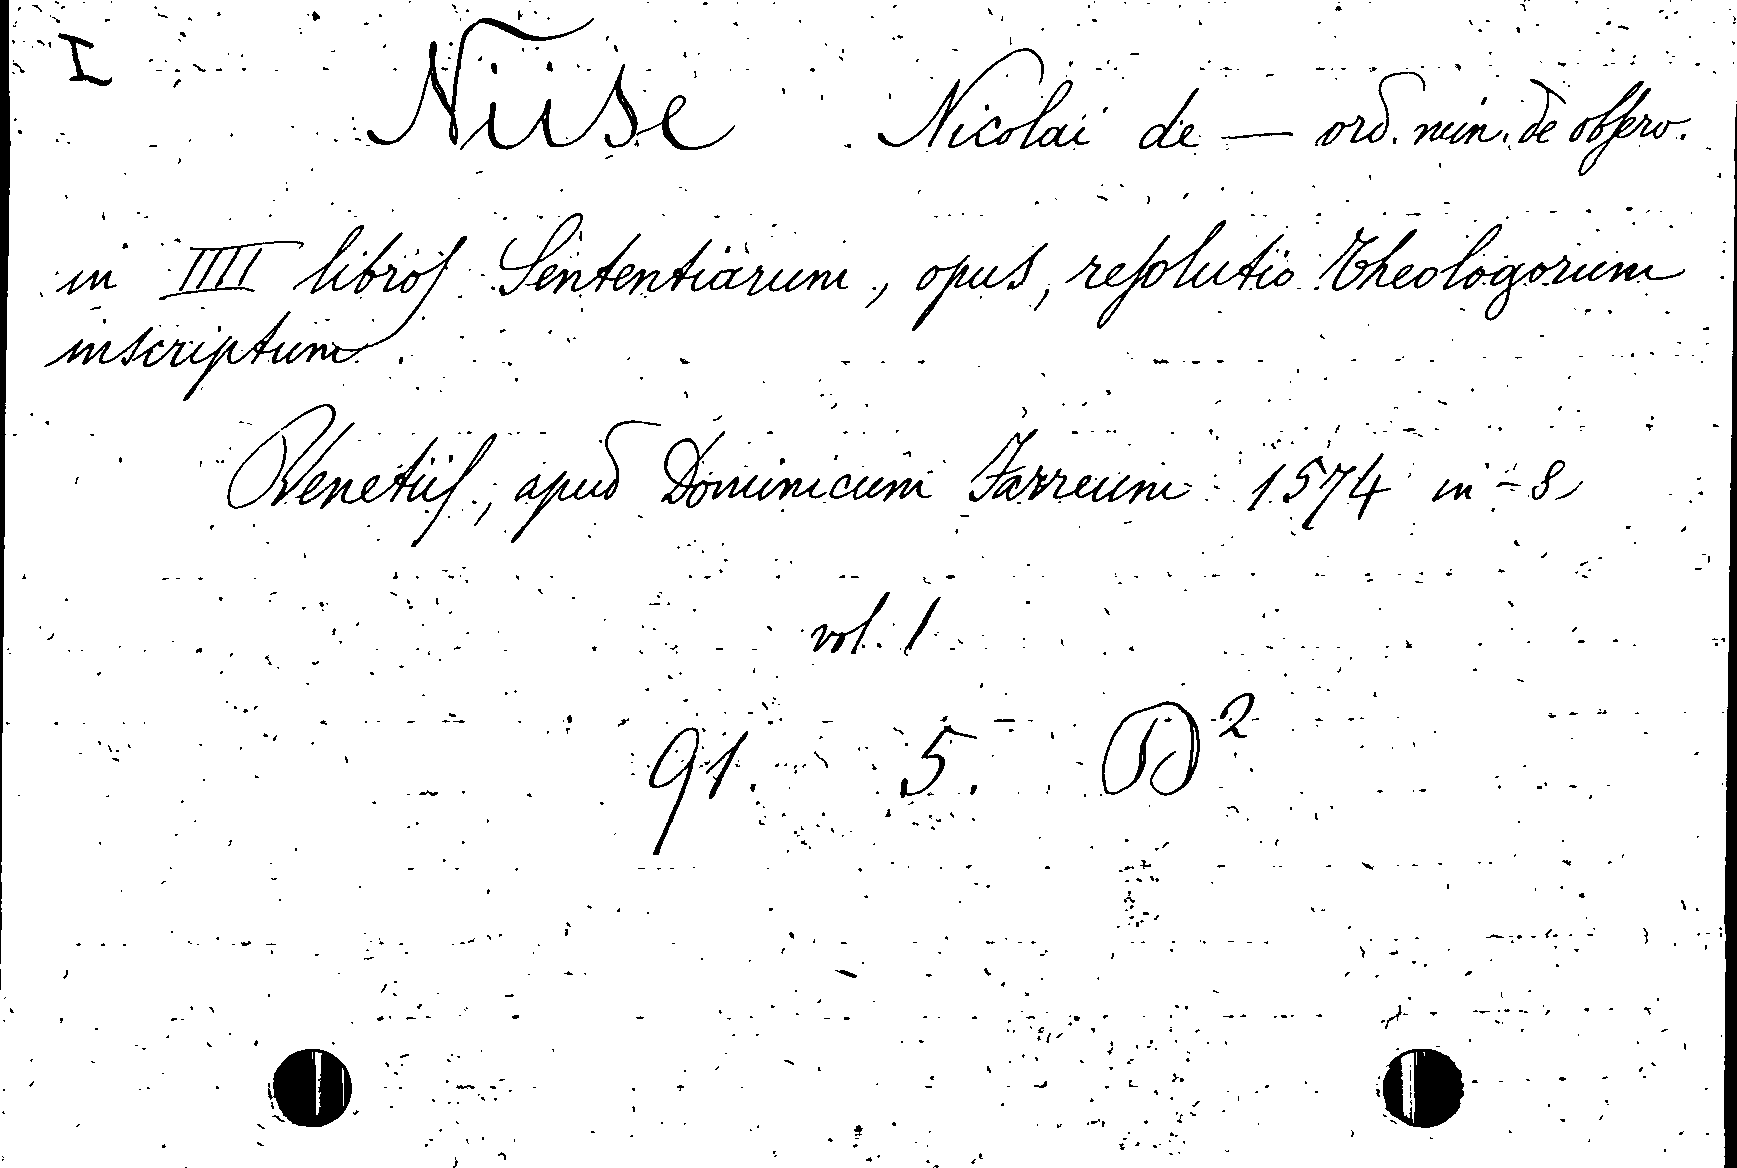 I
Niise Nicolai de — ord. min. de obſerv.
in IIII libroſ Sententiarum, opus, reſolutio Theologorum
inscriptum.
Venetiiſ, apud Dominicum Farreum 1574 in-8
vol. 1
91. 5. D²